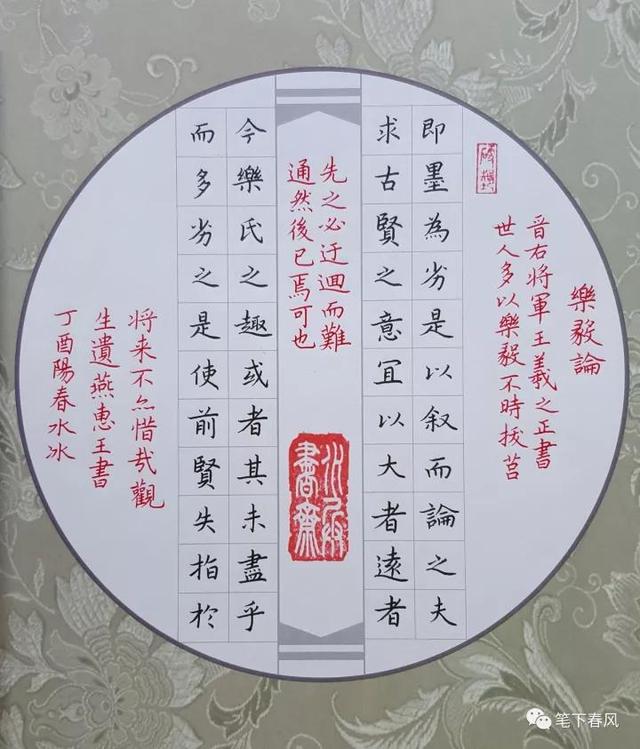 樂毅論
晉右將軍王羲之正書
世人多以樂毅不時拔莒
即墨為劣是以叙而論之夫
求古賢之意宜以大者遠者
先之必迂迴而難
通然後已焉可也
今樂氏之趣或者其未盡乎
而多劣之是使前賢失指於
将来不亦惜哉觀
生遺燕惠王書
丁酉陽春水冰
笔下春风